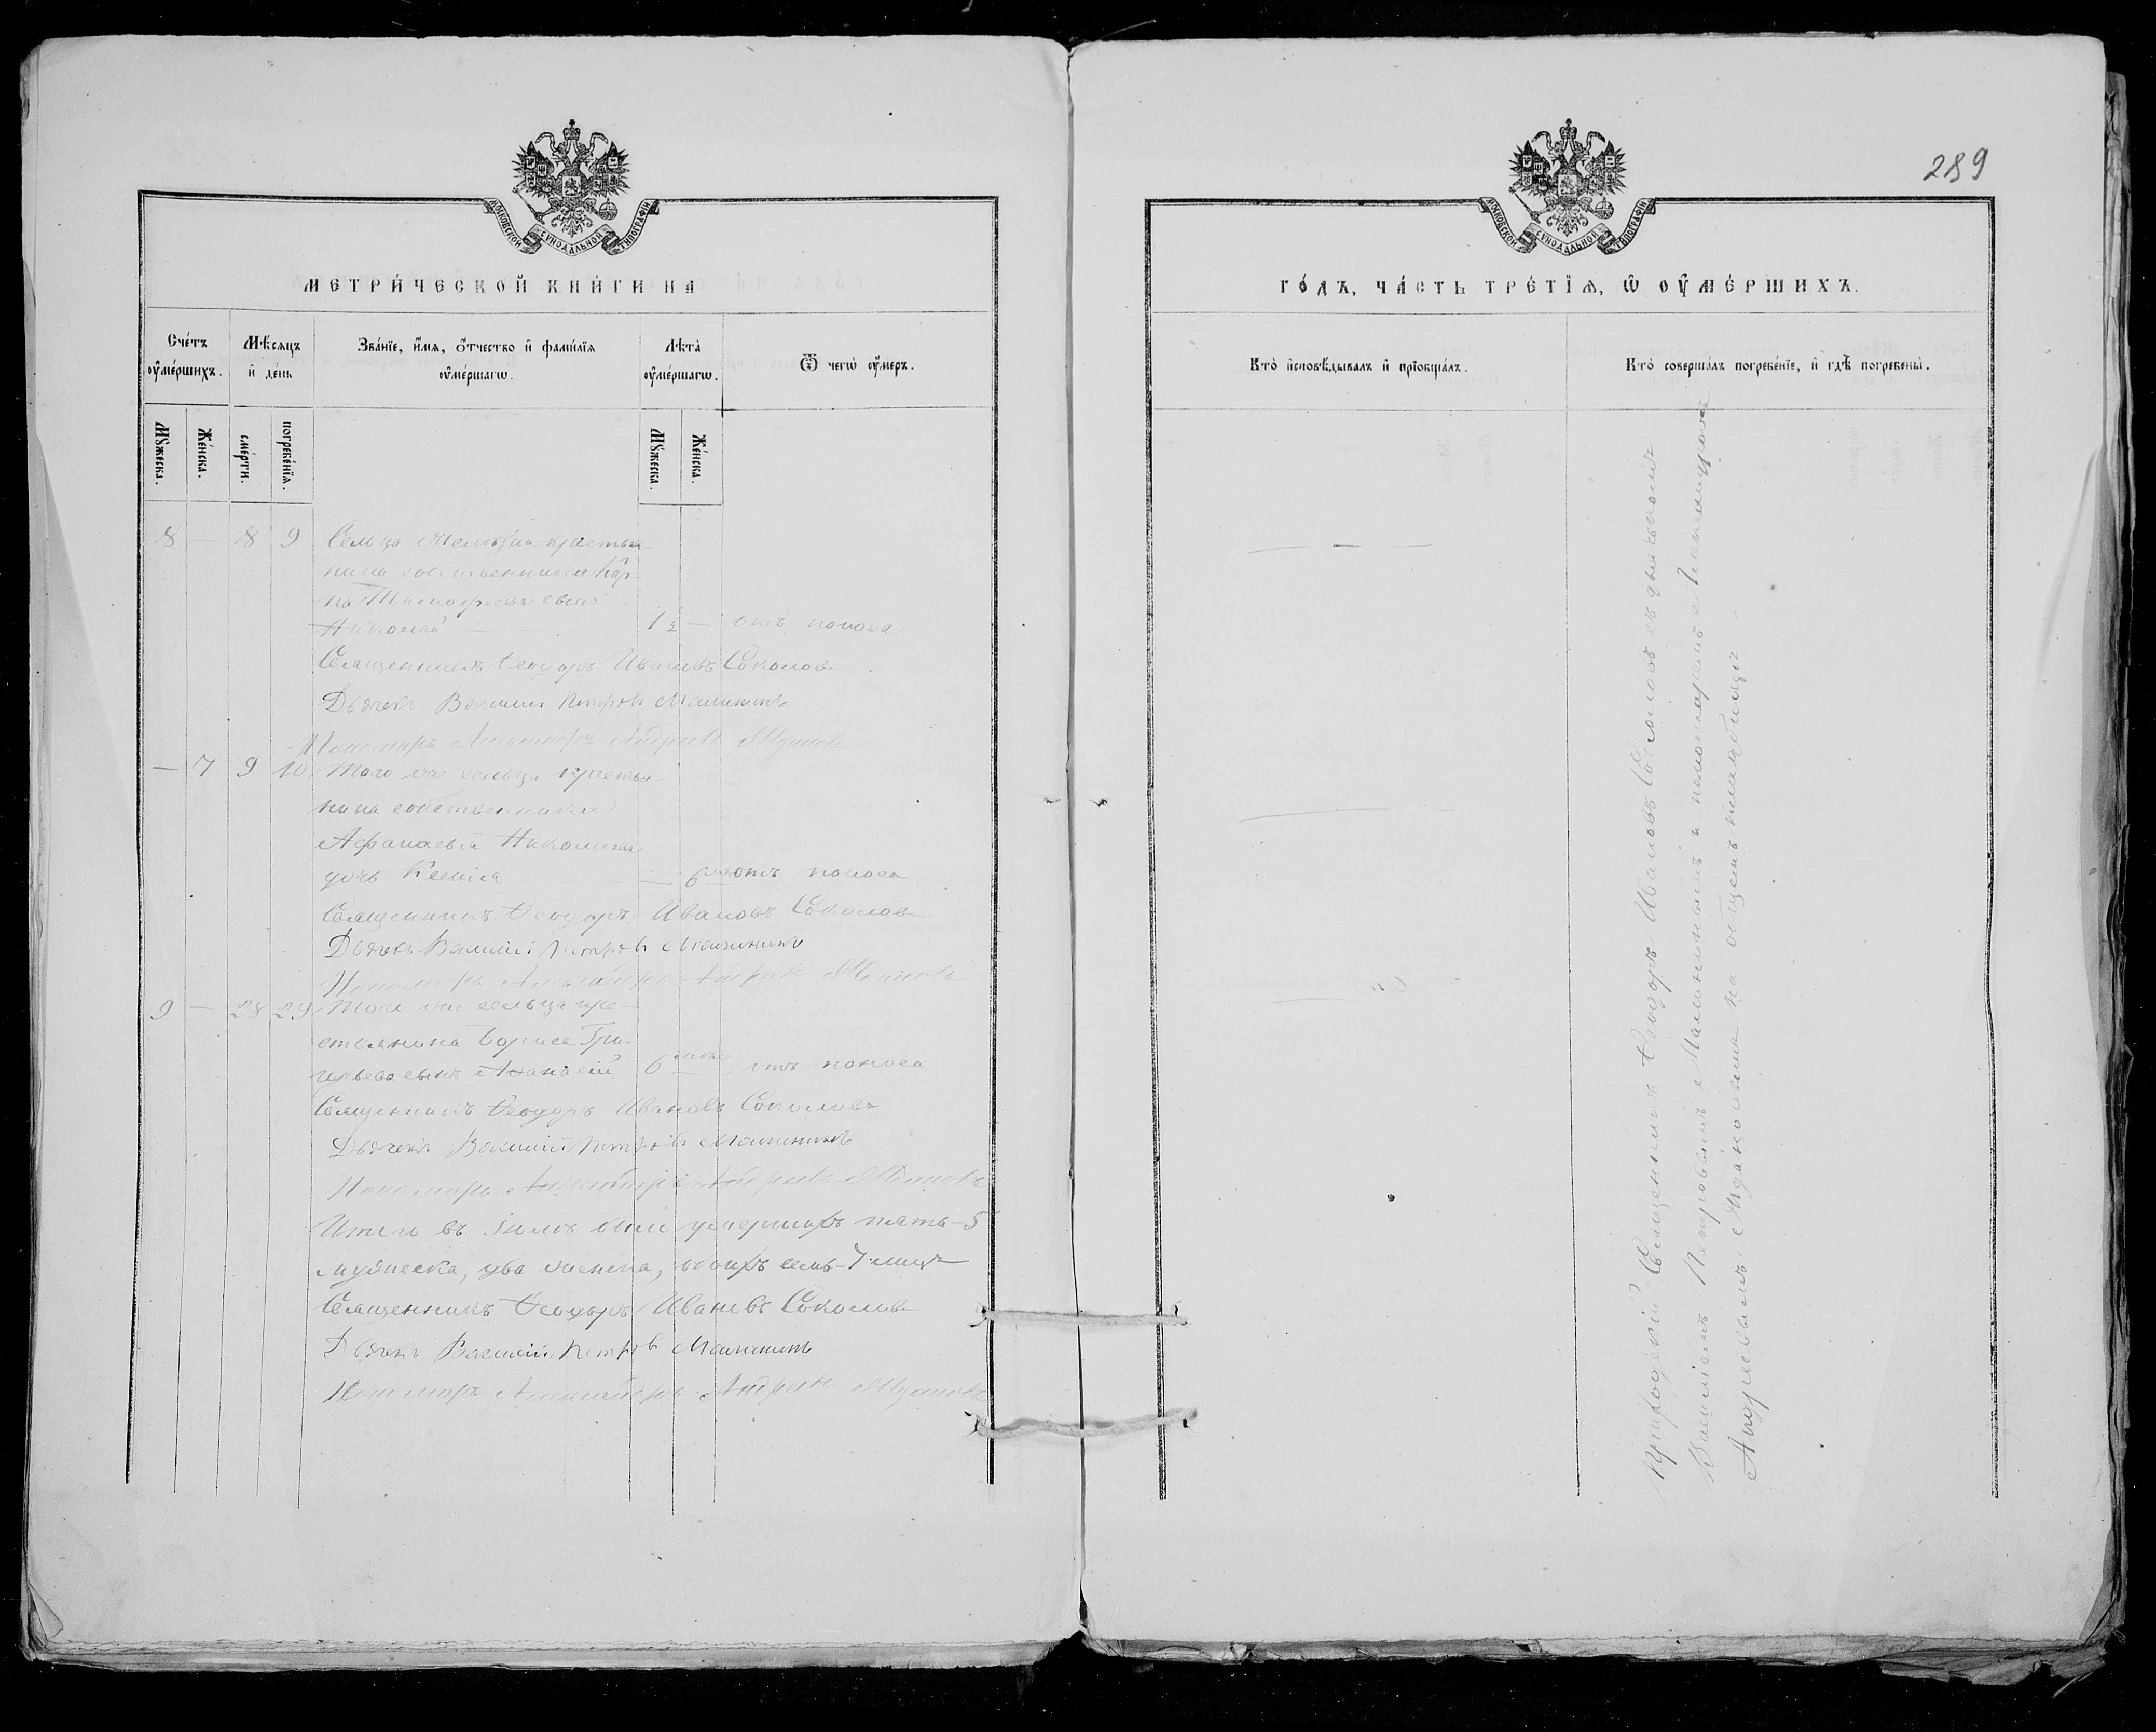 МОСКОВСКОЙ СѴНОДАЛЬНОЙ ТИПОГРАФІИ
МЕТРИ́ЧЕСКОЙ КНИ́ГИ НА
Сче́тъ оу҆ме́ршихъ.
Мѣ́сяцъ и҆ де́нь
Зва́нїе, и҆́мя, ѻ҆́тчество и҆ фами́лїя оу҆ме́ршагѡ.
Лѣ́та оу҆ме́ршагѡ.
Ѿ чегѡ̀ оу҆́меръ.
Мꙋ́жеска.
Же́нска.
сме́рти.
погребе́нїѧ.
Мꙋ́жеска.
Же́нска.
8 — 8 9 Сельца крестья-
нина собственника Кар-
па Тимофеева сынъ
Николай — 1 1/2 — отъ поноса
Священникъ Ѳеодоръ Ивановъ Соколовъ
Дьячекъ Василий Петровъ Малининъ
Пономарь Александръ Андреевъ
— 7 9 10 Того же сельца крестья-
нина собственника
Афанасья Николаева
дочь Ксенія — 6 отъ поноса
Священникъ Ѳеодоръ Ивановъ Соколовъ
Дьячекъ Василій Петровъ Малининъ
Пономарь Александръ Андреевъ
9 — 28 29 Того же сельца кре-
стьянина Бориса Гри-
горьева сынъ Афанасій 6 отъ поноса
Священникъ Ѳеодоръ Ивановъ Соколовъ
Дьячекъ Василий Петровъ Малининъ
Пономарь Александръ Андреевъ
Итого въ Іюлѣ было умершихъ пять - 5
мужеска, два женска, обоихъ семь - 7 лицъ
Священникъ Ѳеодоръ Ивановъ Соколовъ
Дьячекъ Василий Петровъ Малининъ
Пономарь Александръ Андреевъ
289
МОСКОВСКОЙ СѴНОДАЛЬНОЙ ТИПОГРАФІИ
ГО́ДЪ, ЧА́СТЬ ТРЕ́ТЇѦ, Ѡ҆ ОУ҆МЕ́РШИХЪ.
Кто̀ и҆сповѣ́дывалъ и҆ прїобща́лъ.
Кто̀ соверша́лъ погребе́нїе, и҆ гдѣ̀ погребены̀.
Приходскій Священникъ Ѳеодоръ Ивановъ Соколовъ съ дьячкомъ
Василіемъ Петровымъ Малининымъ и пономаремъ Александромъ
Андреевымъ на общемъ кладбищѣ